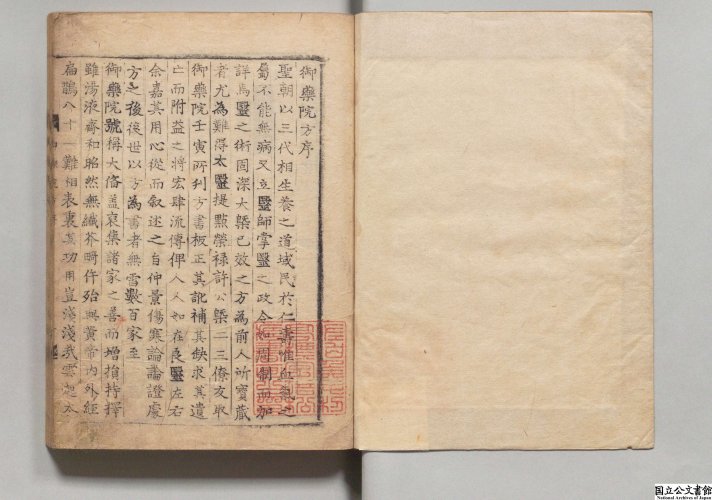 御藥院方序
聖朝以三代相生養之道域民於仁壽惟血氣之
曷不能無病又立醫師掌醫之政令如周制而加
詳焉醫之術固深大槩已效之方為前人所寶藏
者尤為難得太醫提點榮祿許公槩二三僚友取
御藥院壬寅所刋方書板正其訛補其缺求其遺
亡而附益之將宏肆流傳俾人人如在良醫左右
余嘉其用心從而叙述之自仲景傷寒論論證處
方之後後世以方為書者無雪數百家至
御藥院號稱大備盖裒集諸家之善而增損持擇
雖湯液齊和昭然無纖芥畸仵殆與黄帝內外經
扁鵲八十一難相表裏其功用豈淺淺哉雲起太
国立公文書館
National Archives of Japan